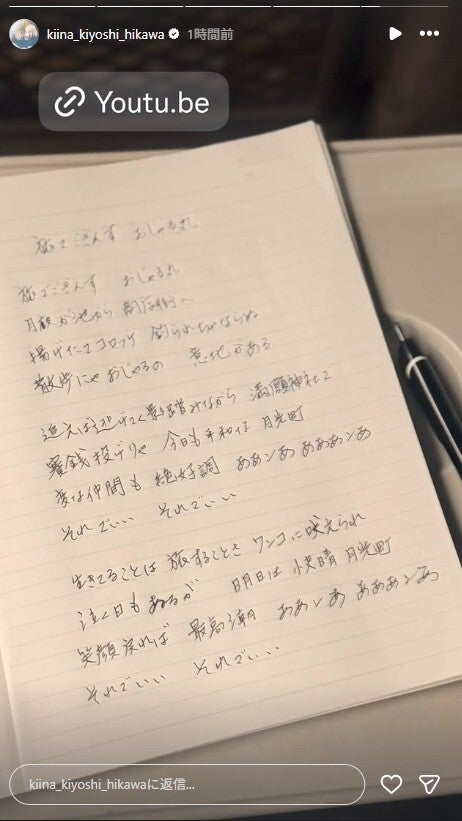 kiina_kiyoshi_hikawa 1時間前
Youtu.be
旅でござんす おじゃる丸
旅でござんす おじゃる丸
月夜が池から 商店街へ
揚げたてコロッケ 釣られちゃならぬ
散歩にゃおじゃるの 意地がある
追えば逃げてく影踏みながら 満願神社で
賽銭投げりゃ 今日も平和な 月光町
変な仲間も 絶好調 ああンあ あああンあ
それでいい それでいい
生きてることは 旅することさ ワンコに吠えられ
泣く日もあるが 明日は 快晴 月光町
笑顔戻れば 最高潮 ああンあ あああンあ
それでいい それでいい
kiina_kiyoshi_hikawaに返信...